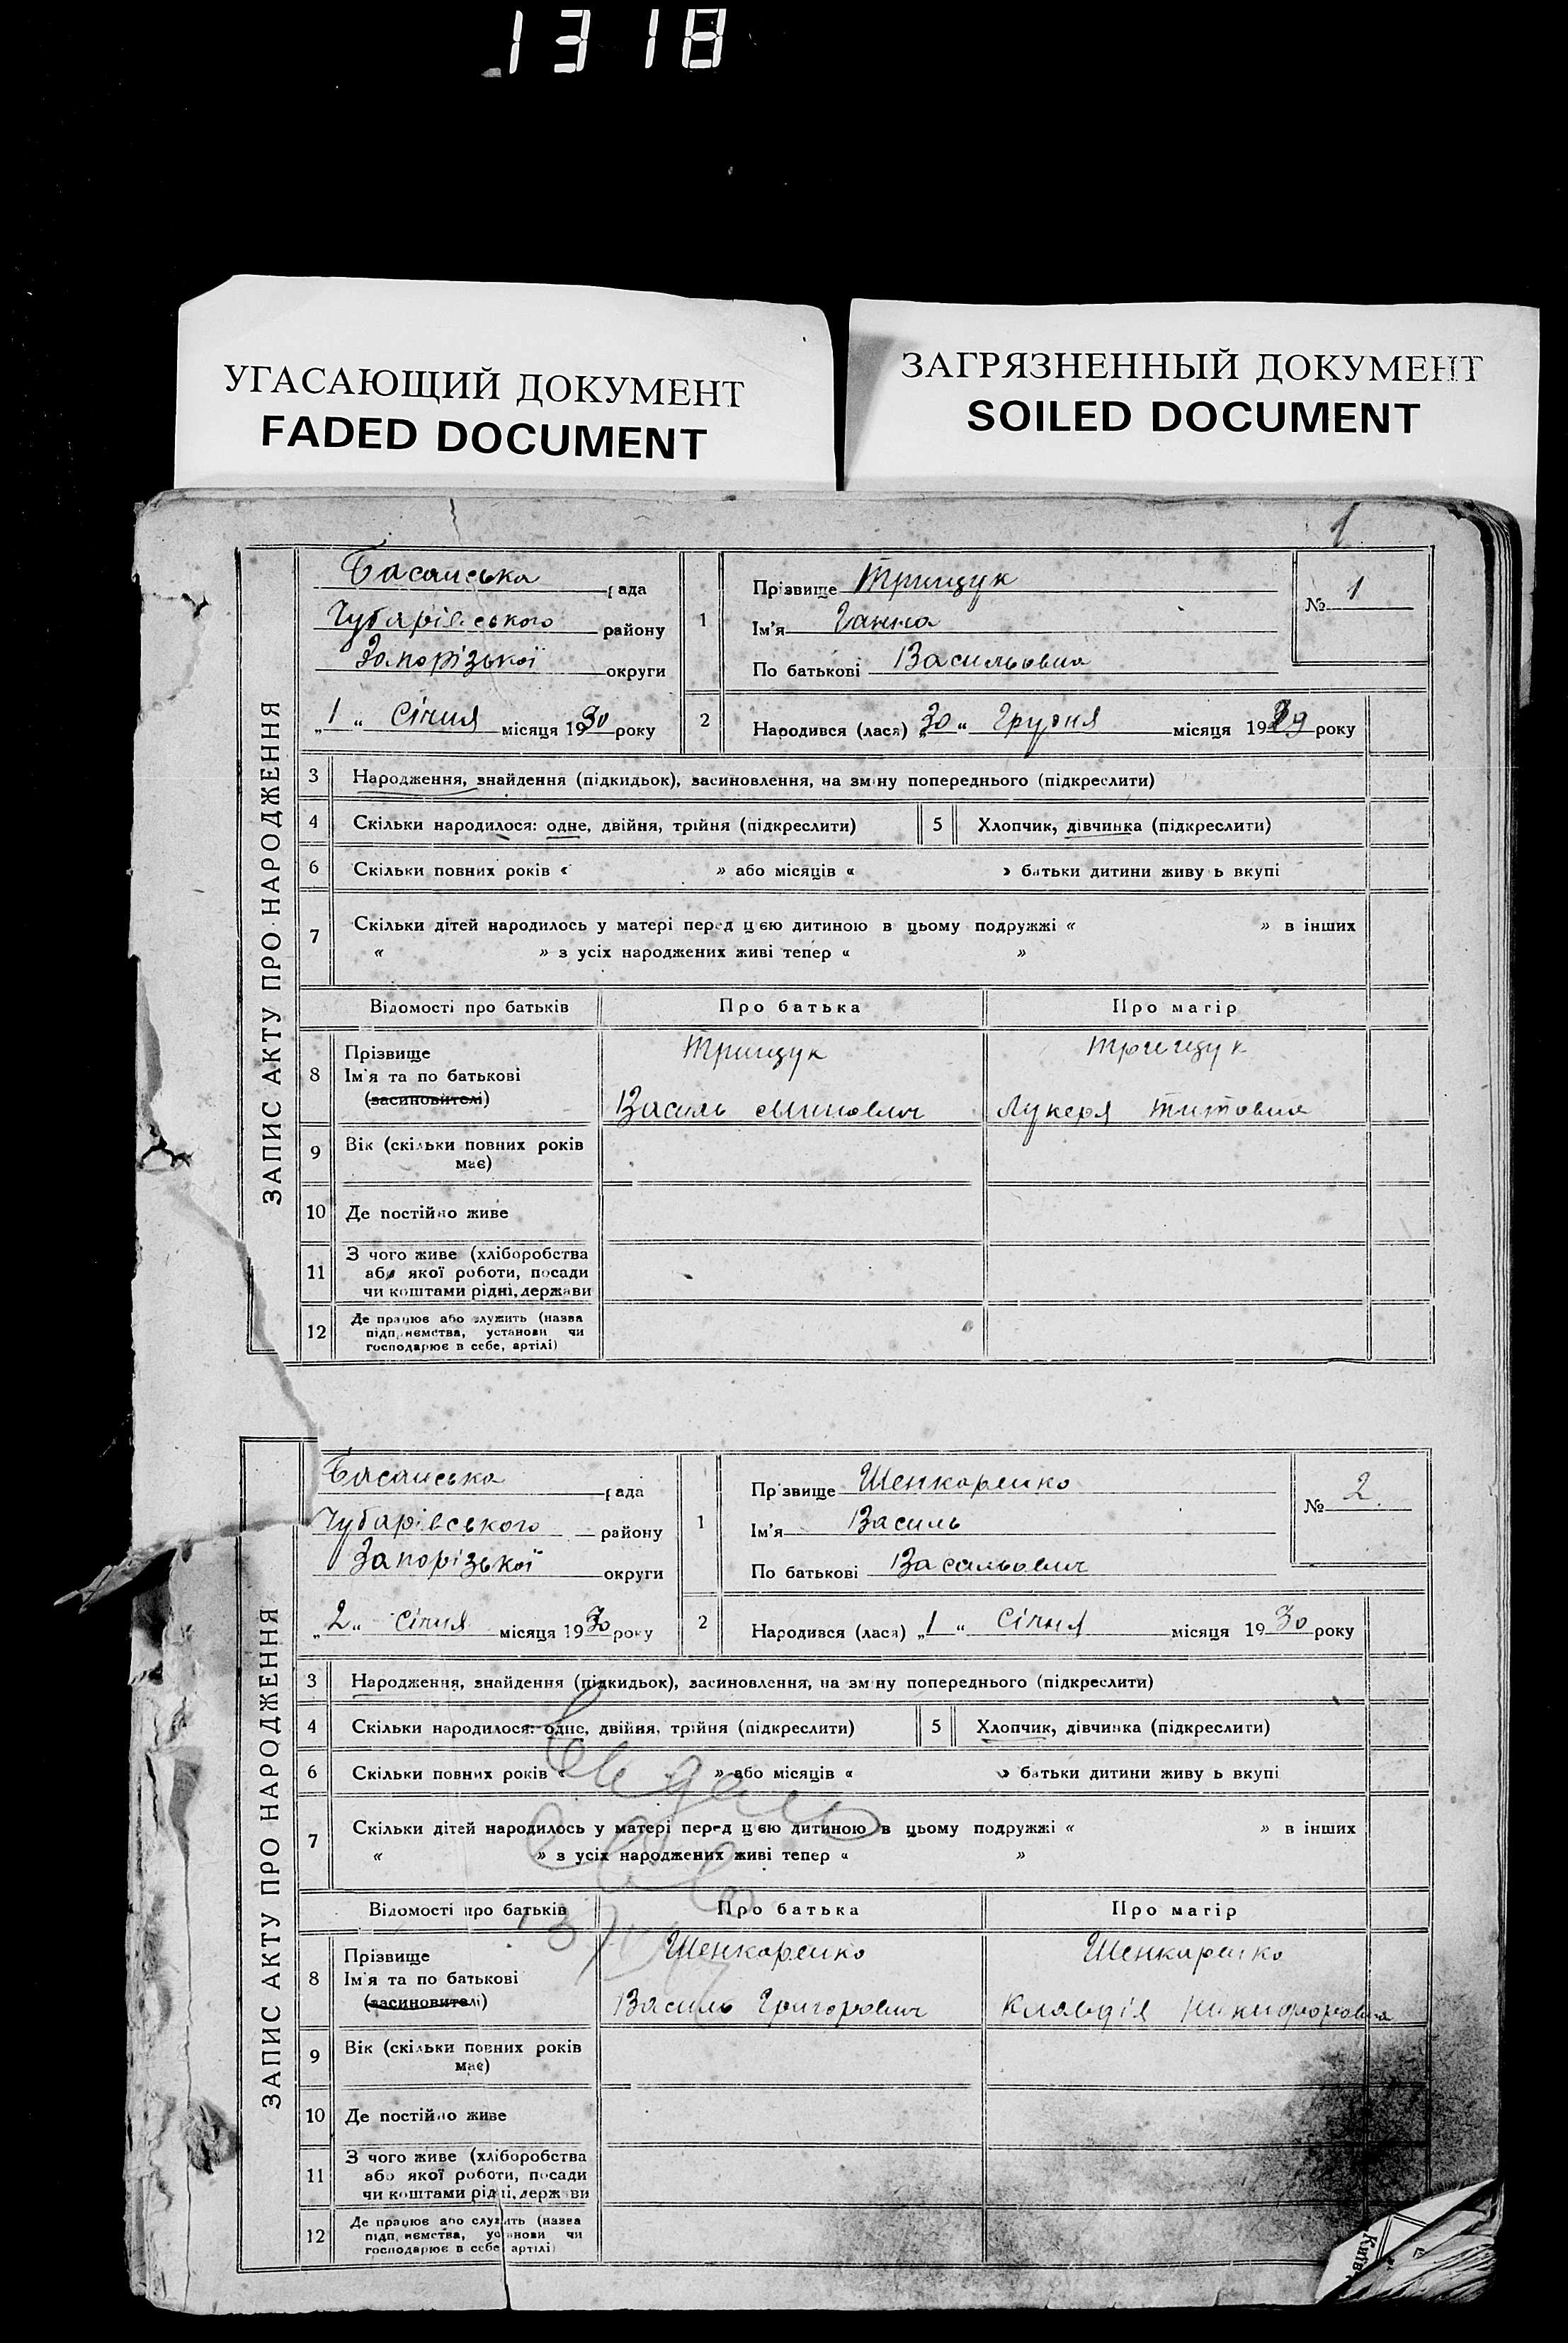 1318
УГАСАЮЩИЙ ДОКУМЕНТ
FADED DOCUMENT
ЗАГРЯЗНЕННЫЙ ДОКУМЕНТ
SOILED DOCUMENT
1
ЗАПИС АКТУ ПРО НАРОДЖЕННЯ
Басанська рада
Чубарівського району
Запорізької округи
„1“ Січня місяця 1930 року
1
Прізвище Трищук
Ім'я Ганна
По батькові Васильовна
№ 1
2
Народився (лася) „30“ Грудня місяця 1929 року
3 Народження, знайдення (підкидьок), засиновлення, на зміну попереднього (підкреслити)
4 Скільки народилося: одне, двійня, трійня (підкреслити)
5 Хлопчик, дівчинка (підкреслити)
6 Скільки повних років « » або місяців « » батьки дитини живуть вкупі
7 Скільки дітей народилось у матері перед цією дитиною в цьому подружжі « » в інших
« » з усіх народжених живі тепер « »
Відомості про батьків Про батька Про матір
8 Прізвище Трищук Трищук
Ім'я та по батькові
(засиновителі) Василь Минович Лукеря Титовна
9 Вік (скільки повних років
має)
10 Де постійно живе
11 З чого живе (хліборобства
або якої роботи, посади
чи коштами рідні, держави
12 Де працює або служить (назва
підприємства, установи чи
господарює в себе, артілі)
ЗАПИС АКТУ ПРО НАРОДЖЕННЯ
Басанська рада
Чубарівського району
Запорізької округи
„2“ Січня місяця 1930 року
1
Прізвище Шенкаренко
Ім'я Василь
По батькові Васильович
№ 2.
2
Народився (лася) „1“ Січня місяця 1930 року
3 Народження, знайдення (підкидьок), засиновлення, на зміну попереднього (підкреслити)
4 Скільки народилося: одне, двійня, трійня (підкреслити)
5 Хлопчик, дівчинка (підкреслити)
6 Скільки повних років « » або місяців « » батьки дитини живуть вкупі
7 Скільки дітей народилось у матері перед цією дитиною в цьому подружжі « » в інших
« » з усіх народжених живі тепер « »
Відомості про батьків Про батька Про матір
8 Прізвище Шенкаренко Шенкаренко
Ім'я та по батькові
(засиновителі) Василь Григорович Клавдія Никифоровна
9 Вік (скільки повних років
має)
10 Де постійно живе
11 З чого живе (хліборобства
або якої роботи, посади
чи коштами рідні, держави
12 Де працює або служить (назва
підприємства, установи чи
господарює в себе, артілі)
Київ